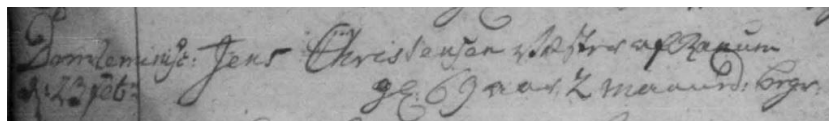 Dom Reminisc: Jens Christensen Vester af Ranum
d: 23 febr: gl: 69 aar 2 maaned: begr: